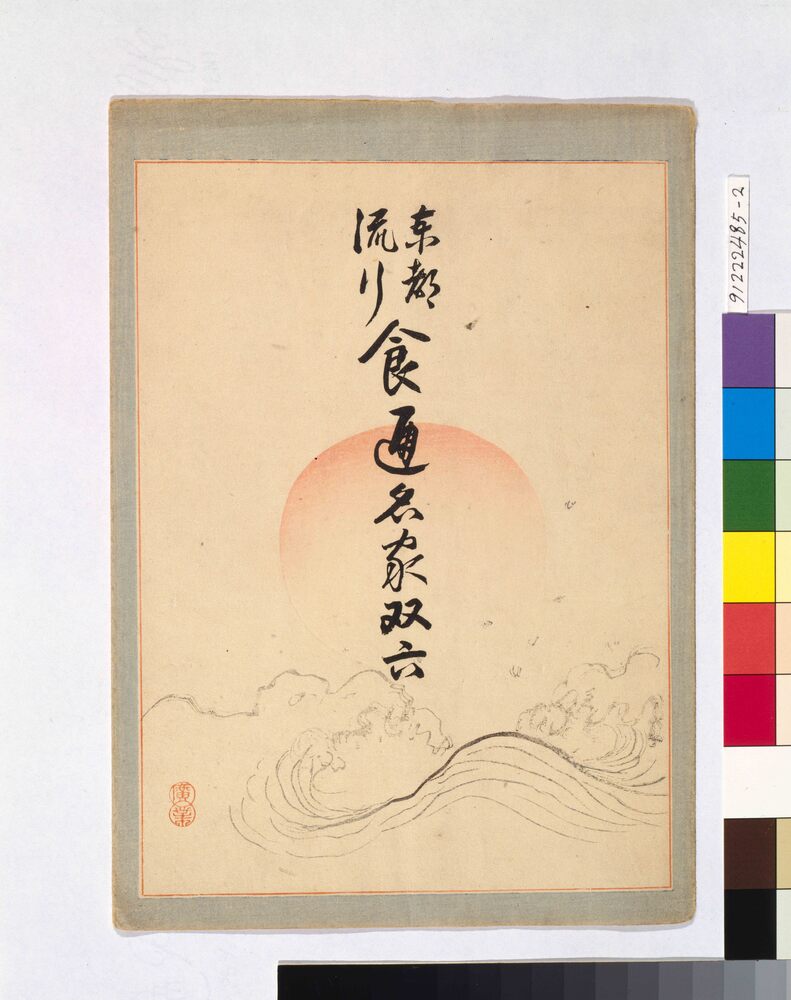 東都
流行
食通名家双六
廣業
91222485-2